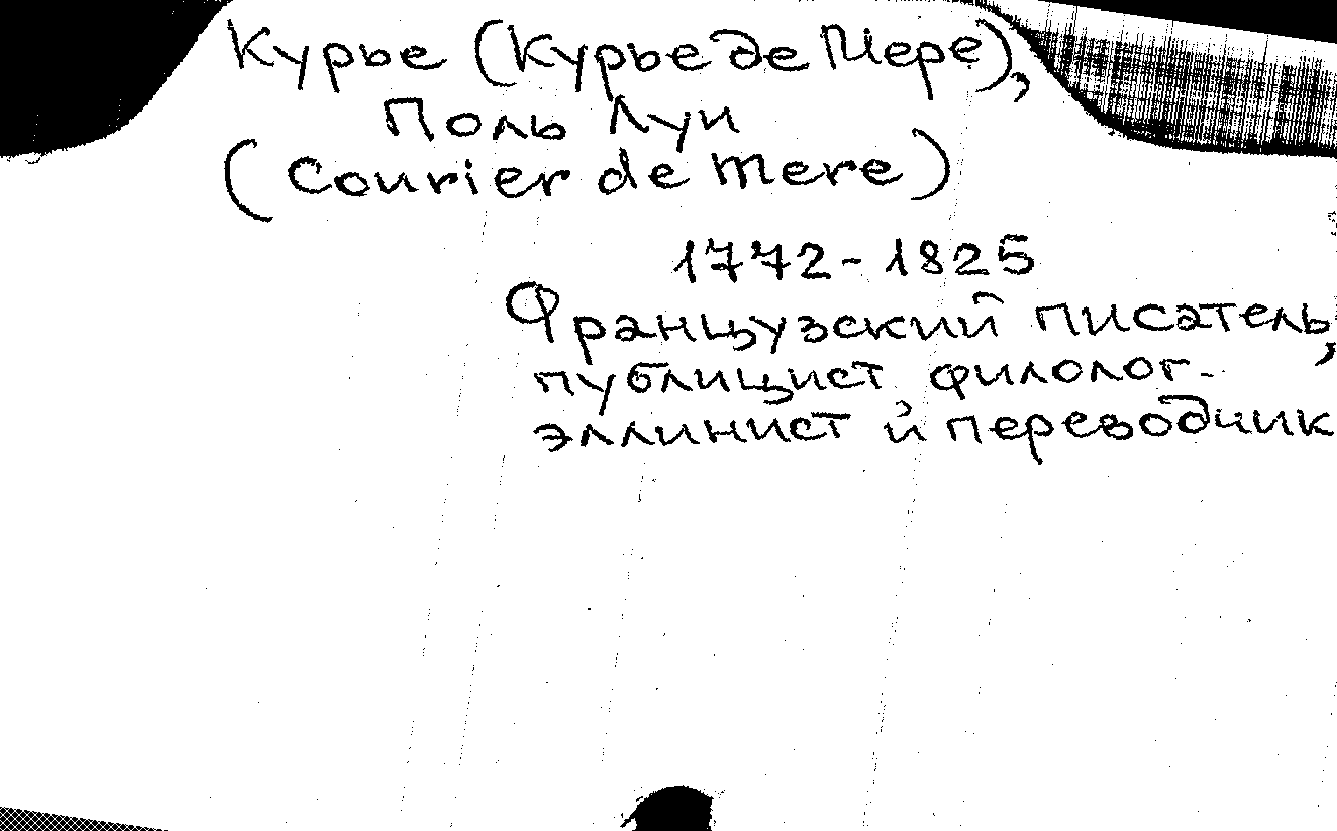 Курье (Курье де Мере),
Поль Луи
(Courier de Mere)
1772-1825
Французский писатель,
публицист, филолог-
эллинист и переводчик